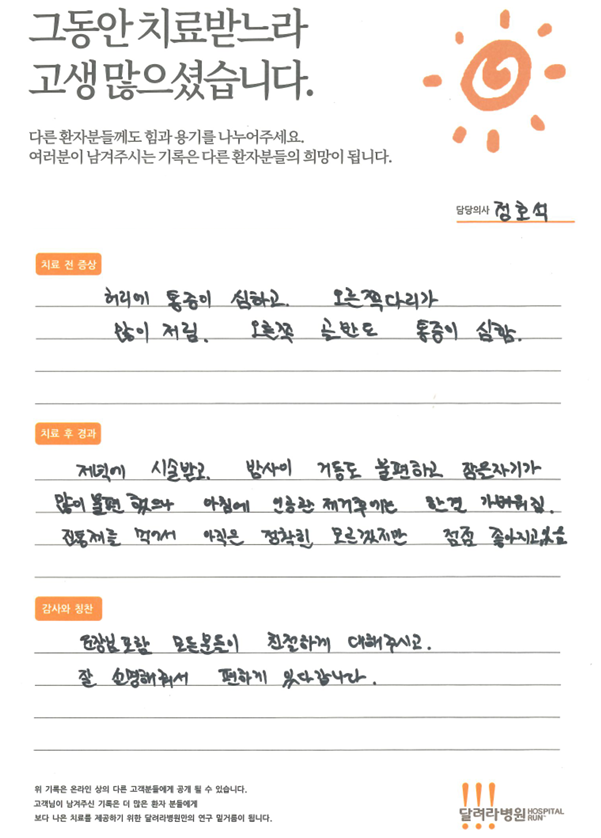 그동안 치료받느라
고생 많으셨습니다.
다른 환자분들께도 힘과 용기를 나누어주세요.
여러분이 남겨주시는 기록은 다른 환자분들의 희망이 됩니다.
담당의사 정호석
치료 전 증상
허리에 통증이 심하고. 오른쪽다리가
많이 저림. 오른쪽 골반도 통증이 심함.
치료 후 경과
저녁에 시술받고. 밤사이 거동도 불편하고 잠은자기가
많이 불편 했으나 아침에 제거후에는 한결 가벼워짐.
진통제를 먹어서 아직은 정확힌 모르겠지만 점점 좋아지고있음
감사와 칭찬
원장님포함 모든분들이 친절하게 대해주시고.
잘 설명해줘서 편하게 있다갑니다.
위 기록은 온라인 상의 다른 고객분들에게 공개 될 수 있습니다.
고객님이 남겨주신 기록은 더 많은 환자 분들에게
보다 나은 치료를 제공하기 위한 달려라병원만의 연구 밑거름이 됩니다.
달려라병원 HOSPITAL RUN